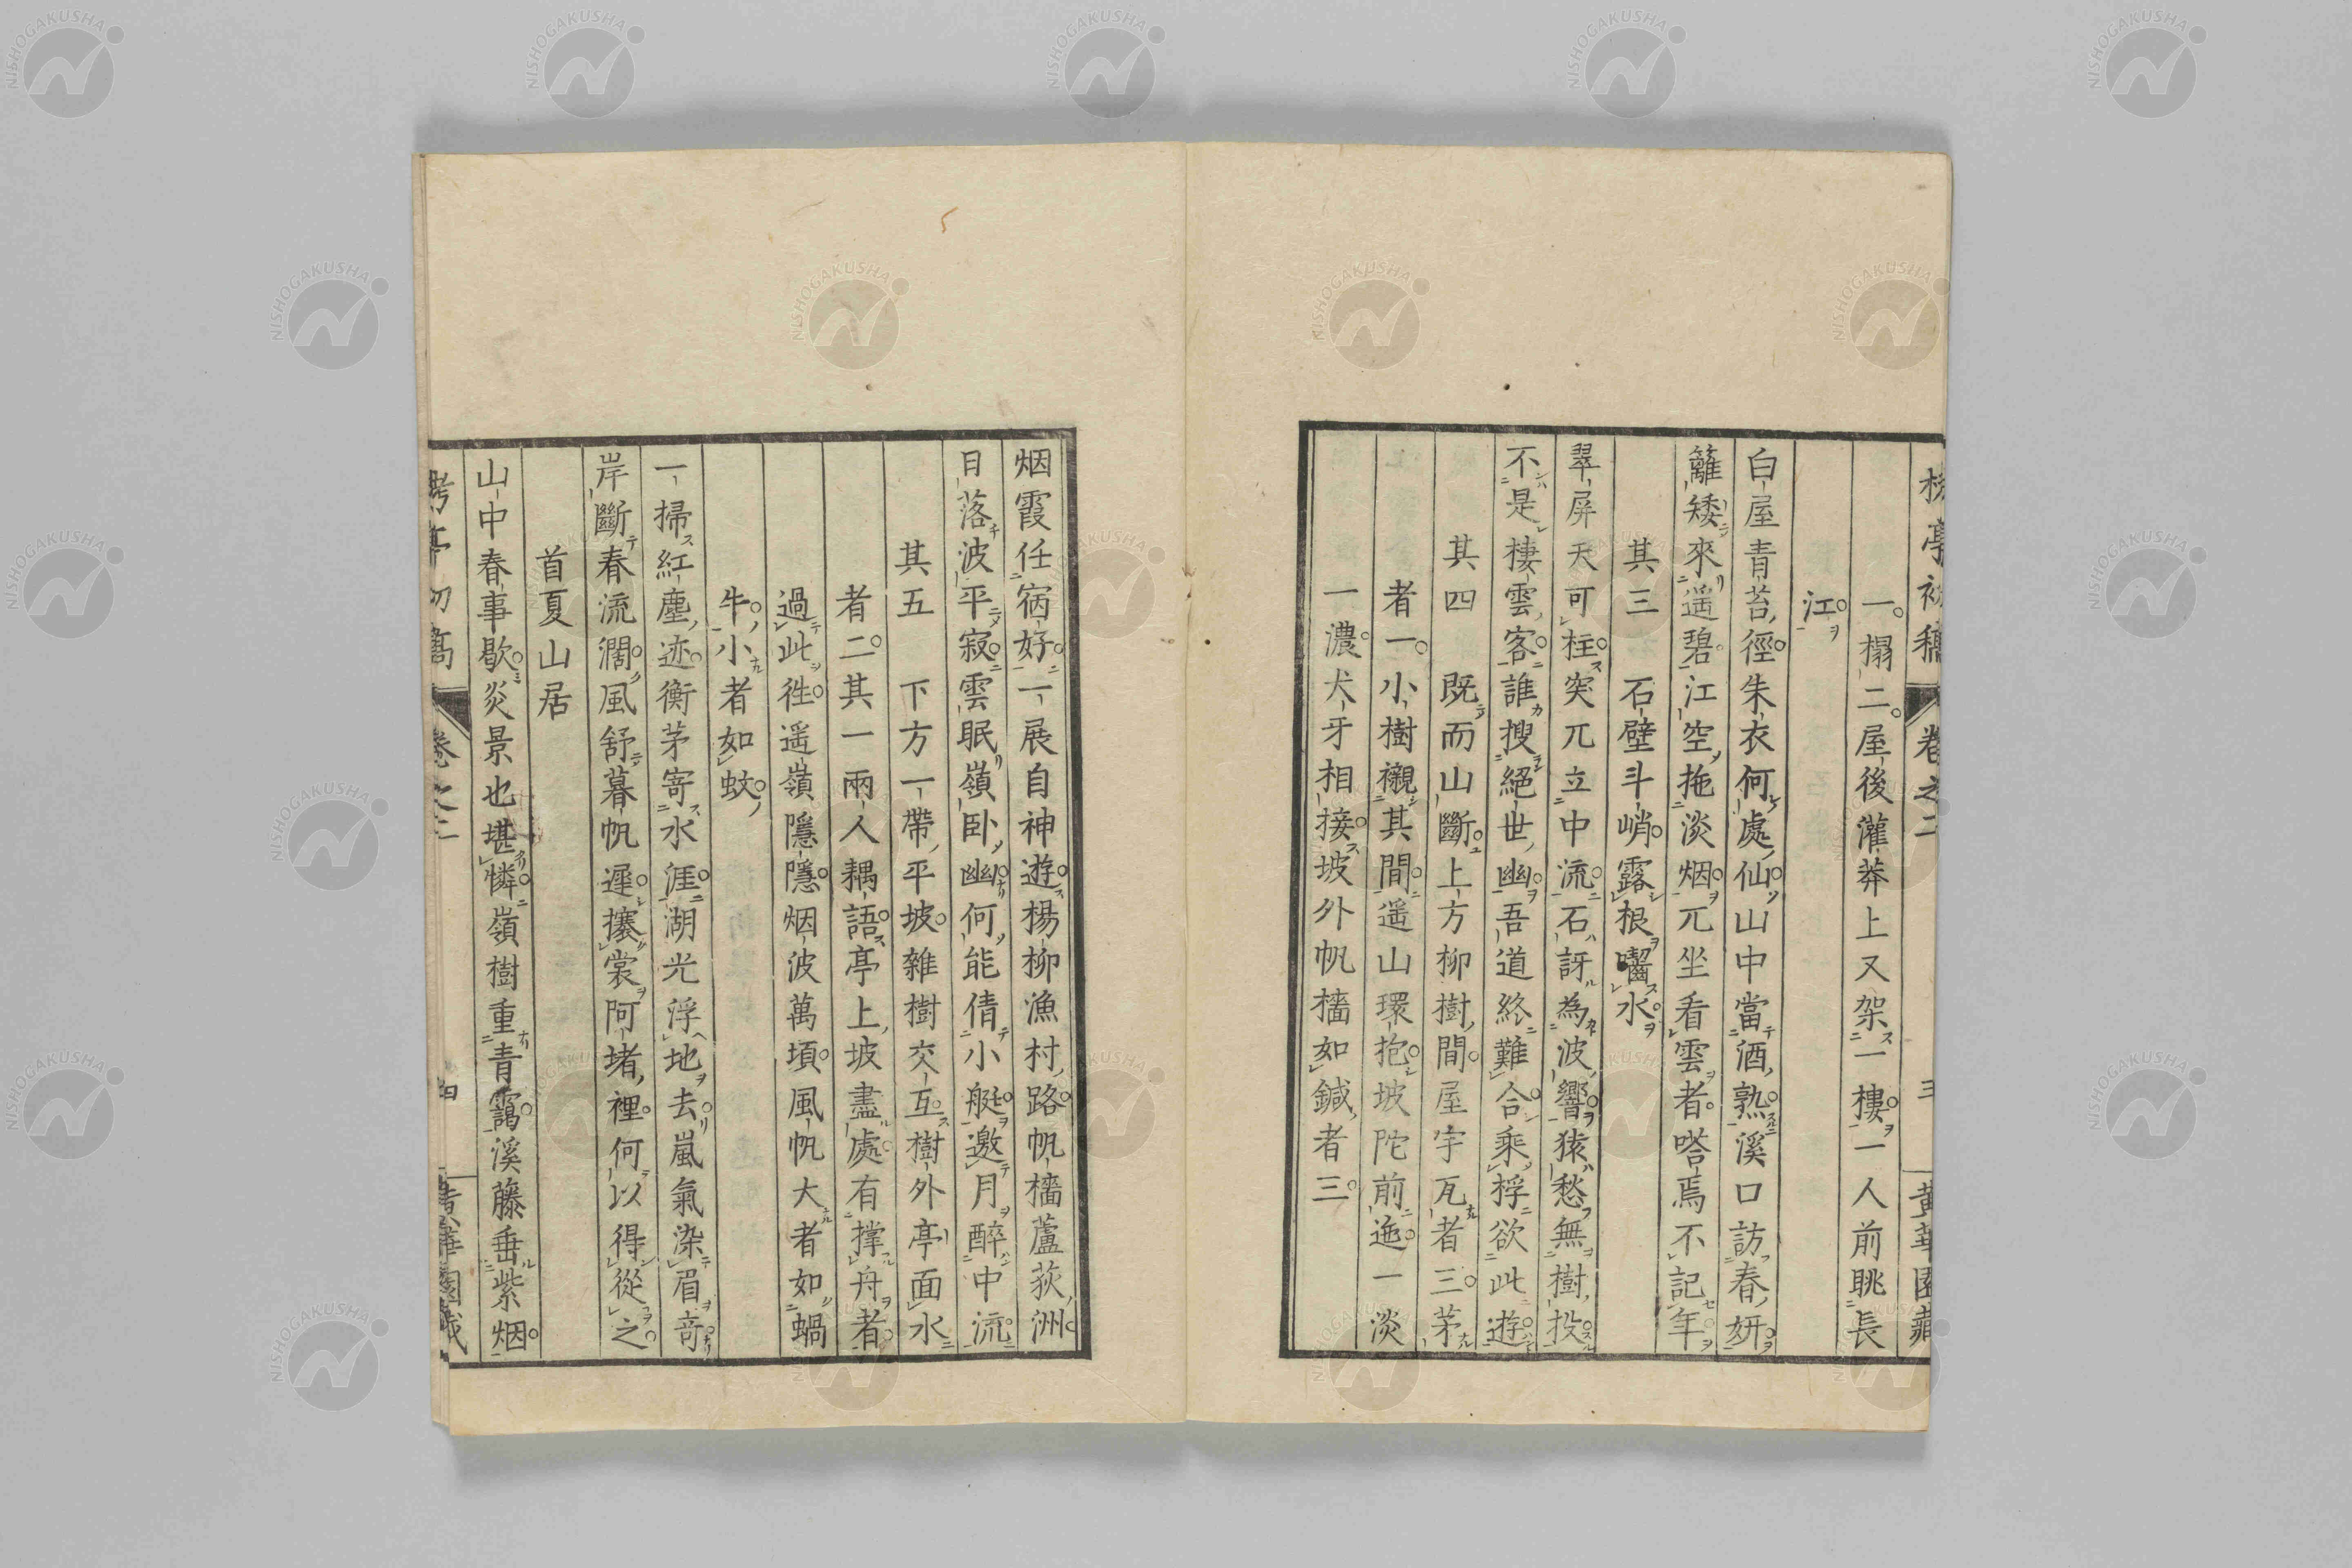 亭初稿 卷之二 三 黄華園藏
一榻二屋後灌莽上又架一樓一人前眺長
江
白屋青苔徑朱衣何處仙山中當酒熟溪口訪春妍
籬矮來遥碧江空拖淡烟兀坐看雲者嗒焉不記年
其三 石壁斗峭露根囓水
翠屏天可柱突兀立中流石訝為波響猿愁無樹投
不是棲雲客誰搜絕世幽吾道終難合乘桴欲此遊
其四 既而山斷上方柳樹間屋宇瓦者三茅
者一小樹襯其間遥山環抱坡陀前迤一淡
一濃犬牙相接坡外帆檣如鍼者三
烟霞任宿好一展自神遊楊柳漁村路帆檣蘆荻洲
日落波平寂雲眠嶺臥幽何能倩小艇邀月醉中流
其五 下方一帶平坡雜樹交互樹外亭面水
者二其一兩人耦語亭上坡盡處有撑舟者
過此徃遥嶺隱隱烟波萬頃風帆大者如蝸
牛小者如蚊
一掃紅塵迹衡茅寄水涯湖光浮地去嵐氣染眉奇
岸斷春流濶風舒暮帆遲攘裳阿堵裡何以得從之
首夏山居
山中春事歇炎景也堪憐嶺樹重青靄溪藤垂紫烟
亭初稿 卷之二 四 黄華園藏